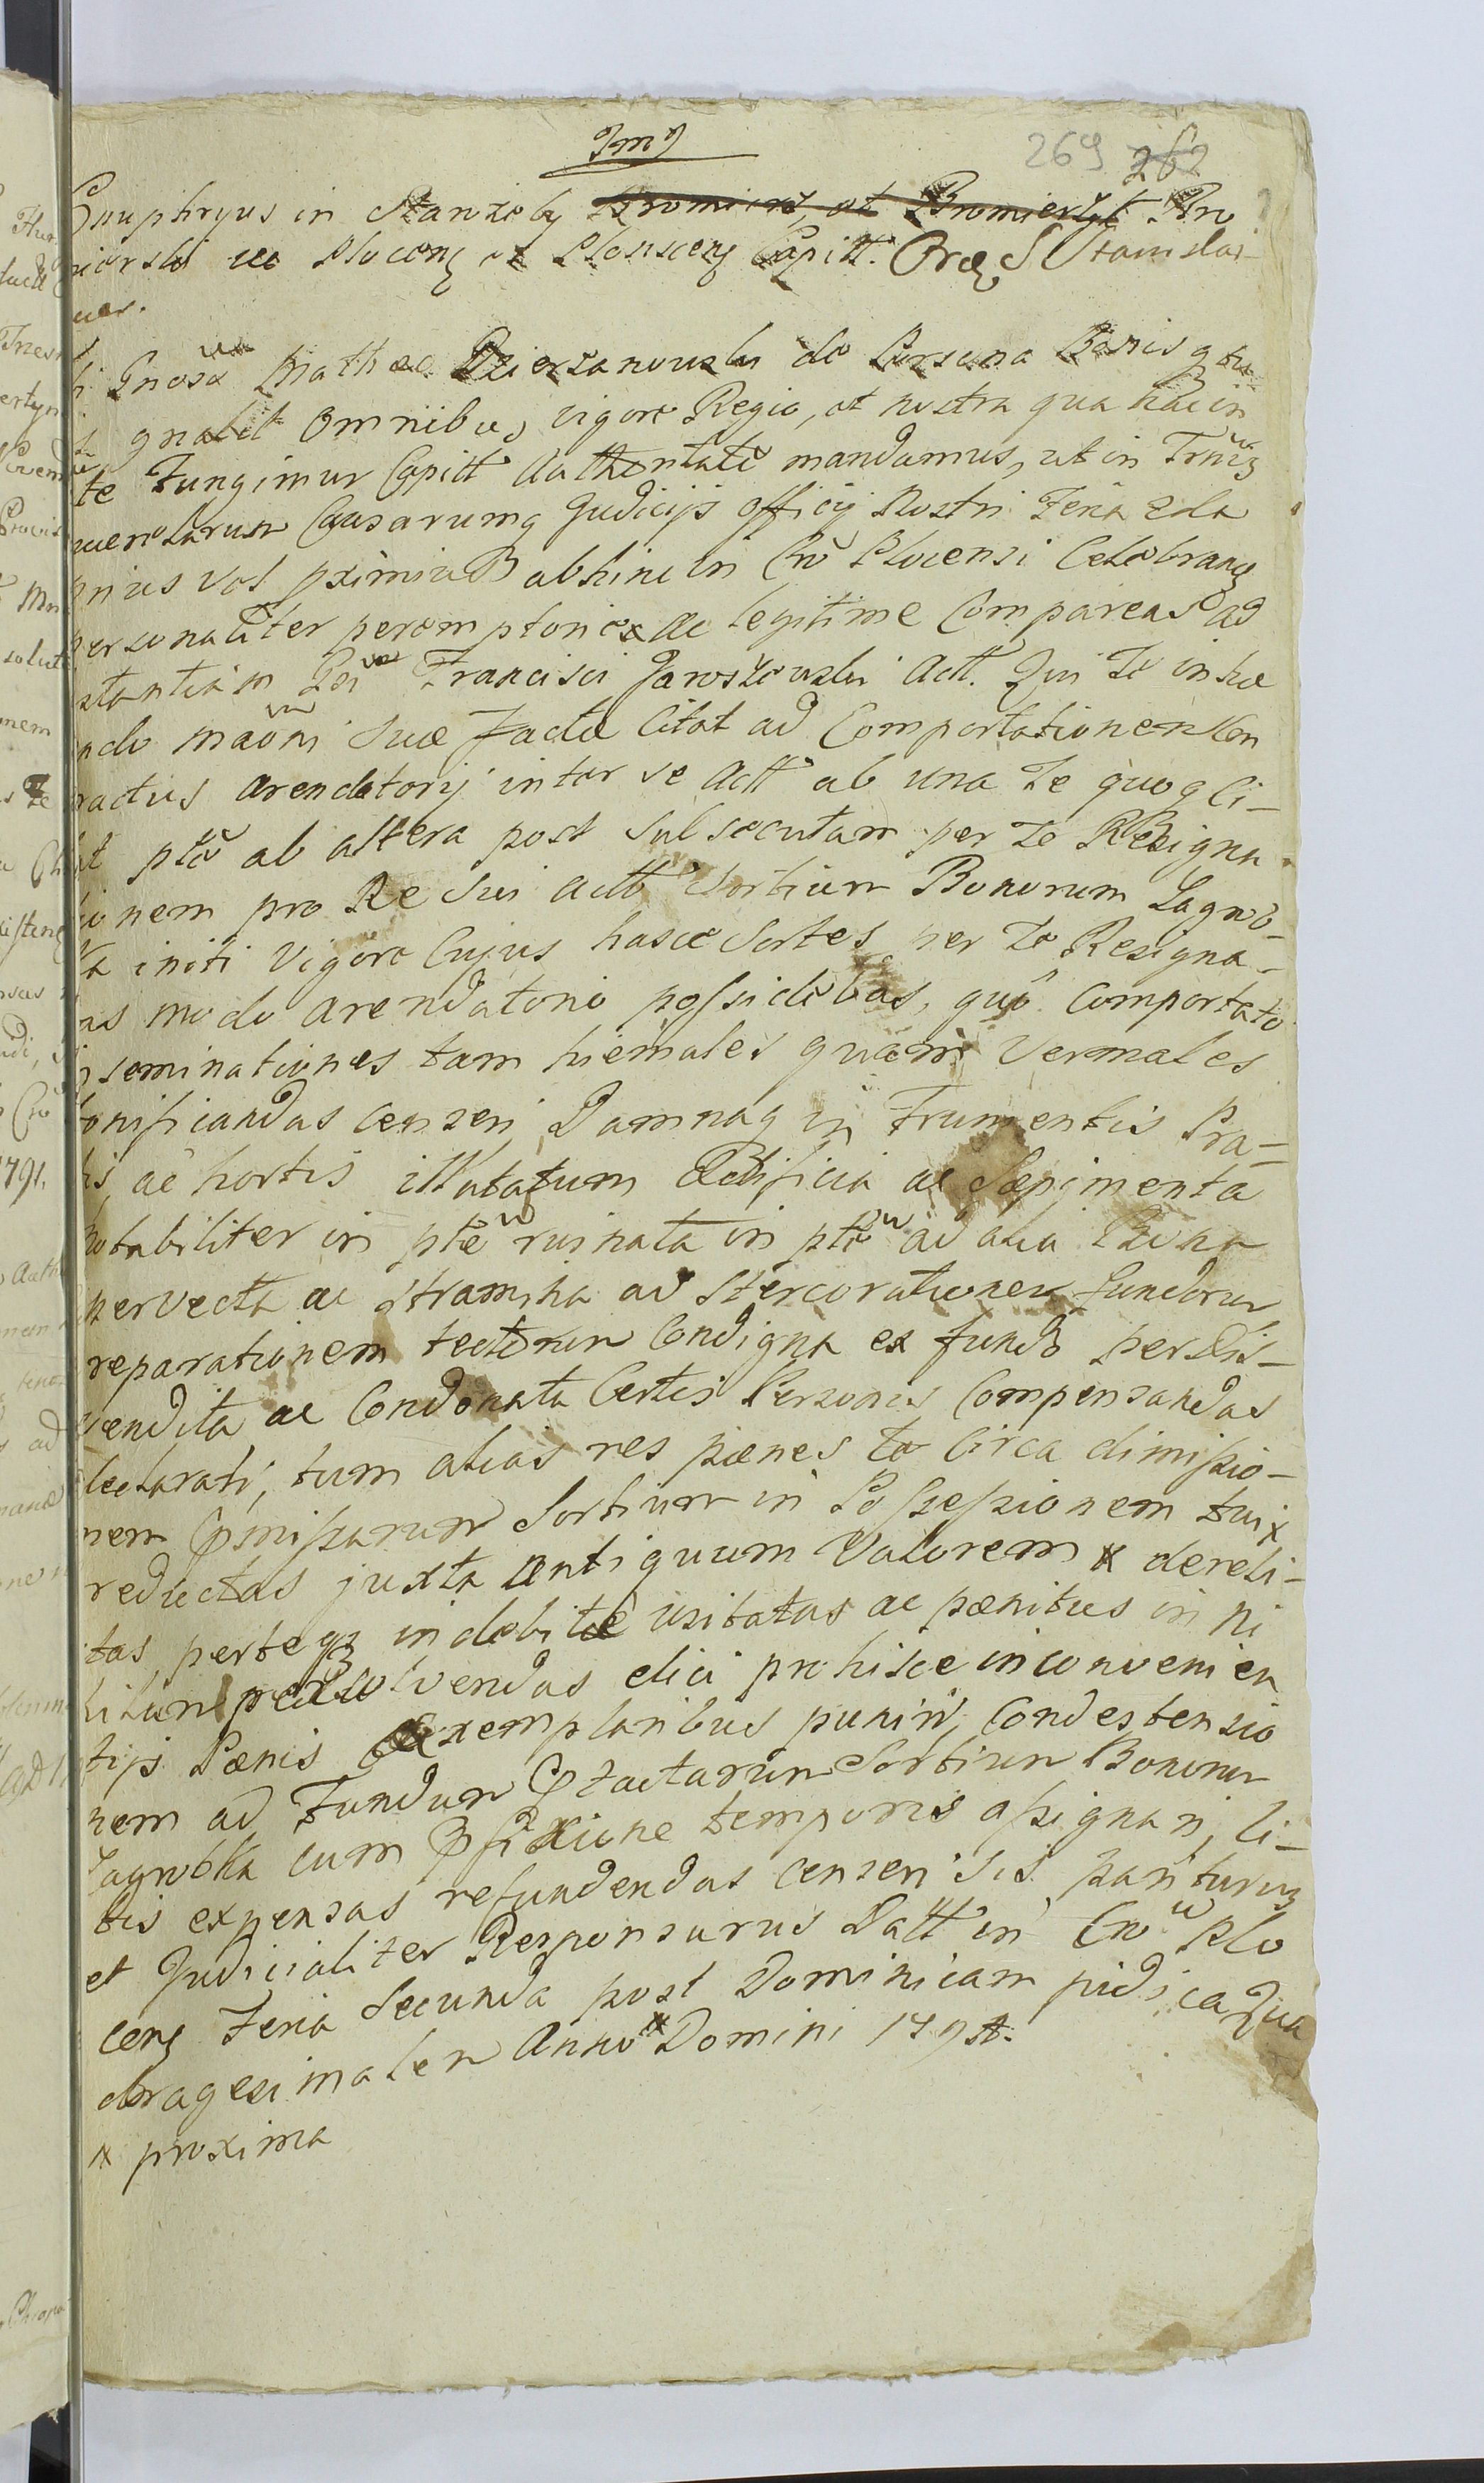 Jmj
269 262
Onuphryus in Stanzeby Bromierz, et Bromierzyk Bro
mierski ec Ploceng et Plonsceng Capitt. Ordq S Stanislai
ues.
Gnose Mathee Dzierzanowski de Persona Bonisq tuis
gnalit omnibus, vigore Regia, et nostra qua hac in
te Fungimur Capitt Authoritate mandamus, ut in Trmis
uerelarum Causarumq Judicijs officij Nostri Feria 2da
prius vel pximius abhinc in Cro Plocensi Celebrang
personaliter peremptorie ac legitime Compareas ad
stantiam Gsi Francisci Jaroszewski Actt. Qui Te inhæ
ndo maoni suæ Factæ Citat ad Comportationem Con
ractus arendatorij inter se Actt ab una Te quoq Ci-
at pte ab altera post subsecutam per Te Resigna-
ionem pro Re sui Actt Sortium Bonorum Lagnó-
ka initi Vigore Cujus hasce Sortes per Te Resigna-
as modo arendatorio possidebas, quo Comportato
seminationes tam hiemales quam Vermales
onificandas censeri, Damnaq in Frumentis Pra-
is, ac hortis illatatum Ædificia ac Sæpimenta
notabiliter in pte ruinata in pte ad alia Bona
pervecta ac stramina ad Stercorationem fundorum
reparationem tectorum Condigna ex fundo perdis-
vendita ac Condonata Certis Personis Compensandas
declarari, tum alias res pænes te Circa dimissio-
nem pmissarum Sortium in Possessionem tui x
reductas juxta antiquum Valorem x dereli-
tas, perteqz indebite usitatas ac pænitus in ni
hilum persolvendas dici prohisce inconvenien
tijs Pænis exemplaribus puniri, Condestensio
nem ad Fundum Ptactarum Sortium Bonorum
Lagnobka cum Pfixione temporis assignari, li-
tis expensas refundendas censeri Sis pariturus
et Judicialiter Responsurus Datt in Cro Plo
ceng Feria Secunda post Dominicam pidica Qua
dragesimalem Anno x Domini 1791.
x proxima